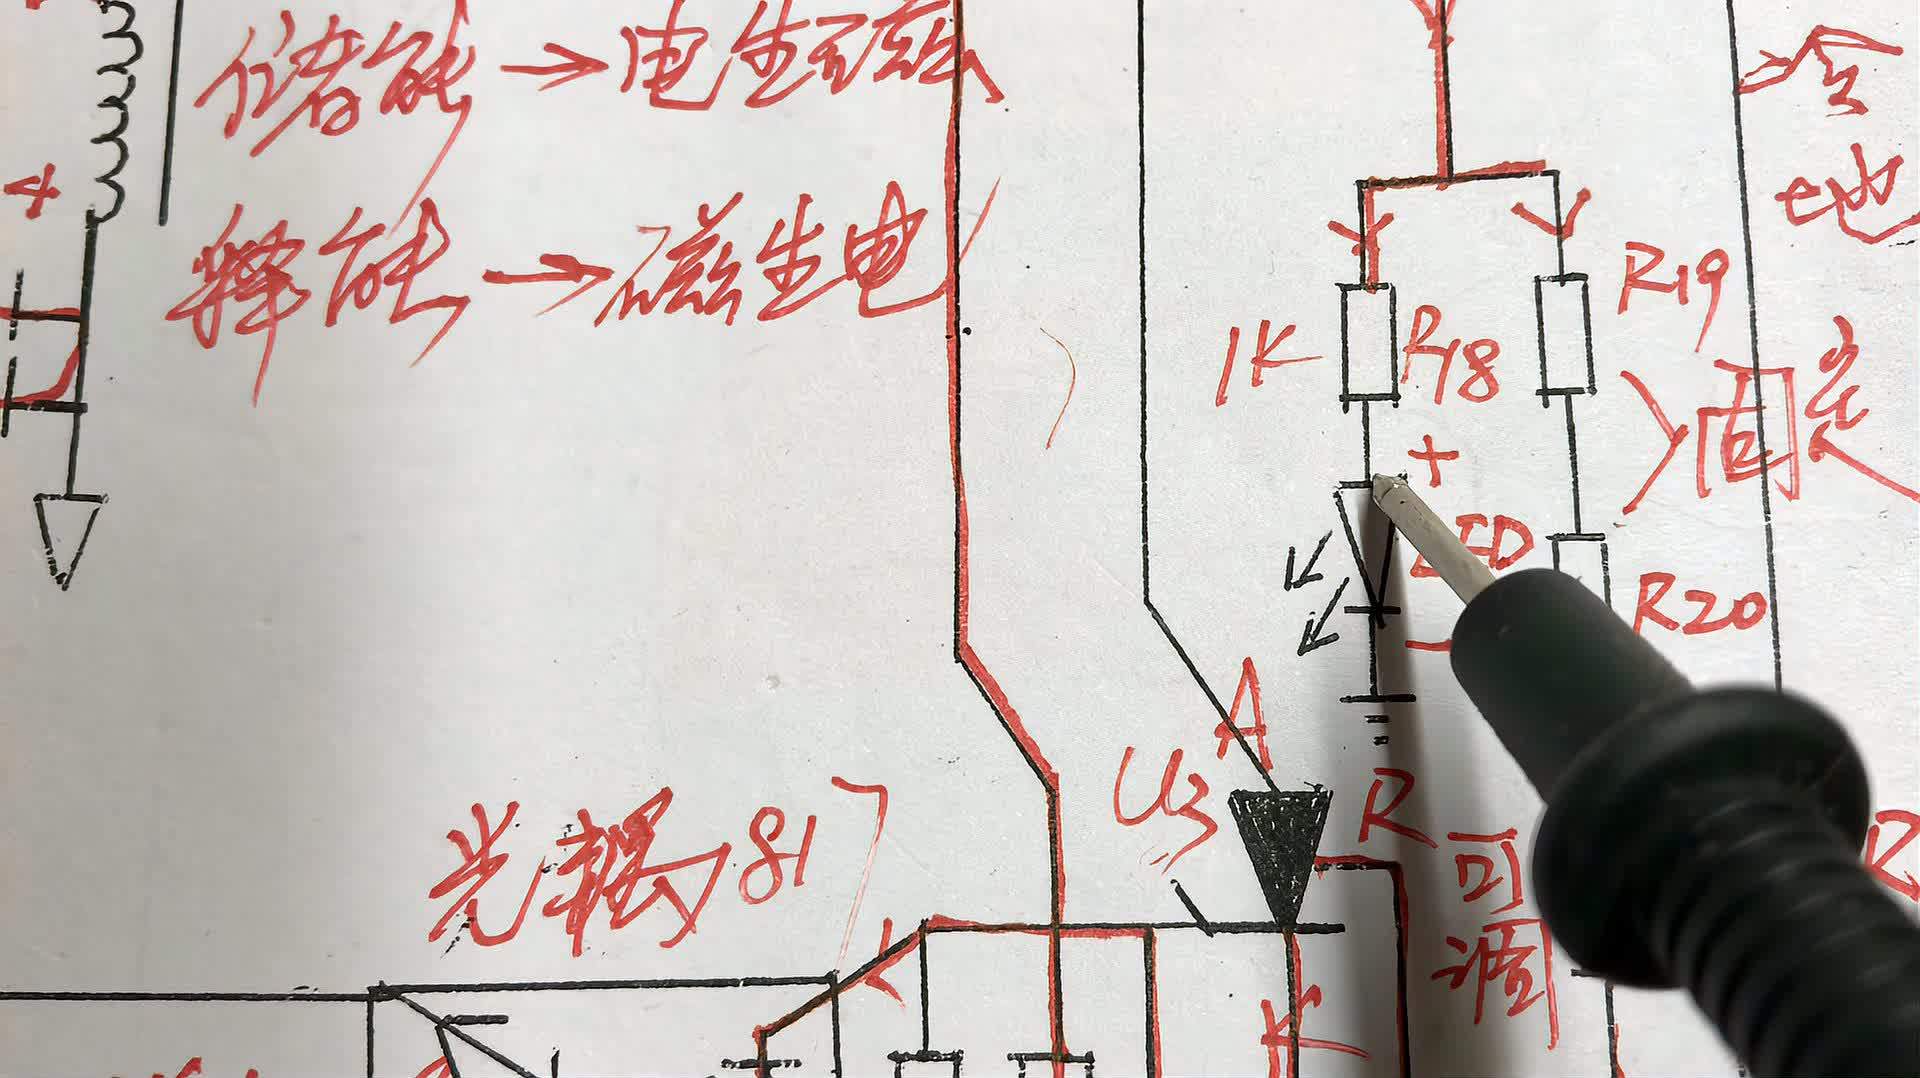 储能→电生磁
冷
地
4
释能→磁生电
R19
1K
R18
固定
+
LED
R20
-
A
U3
R
光耦781
可
调
K